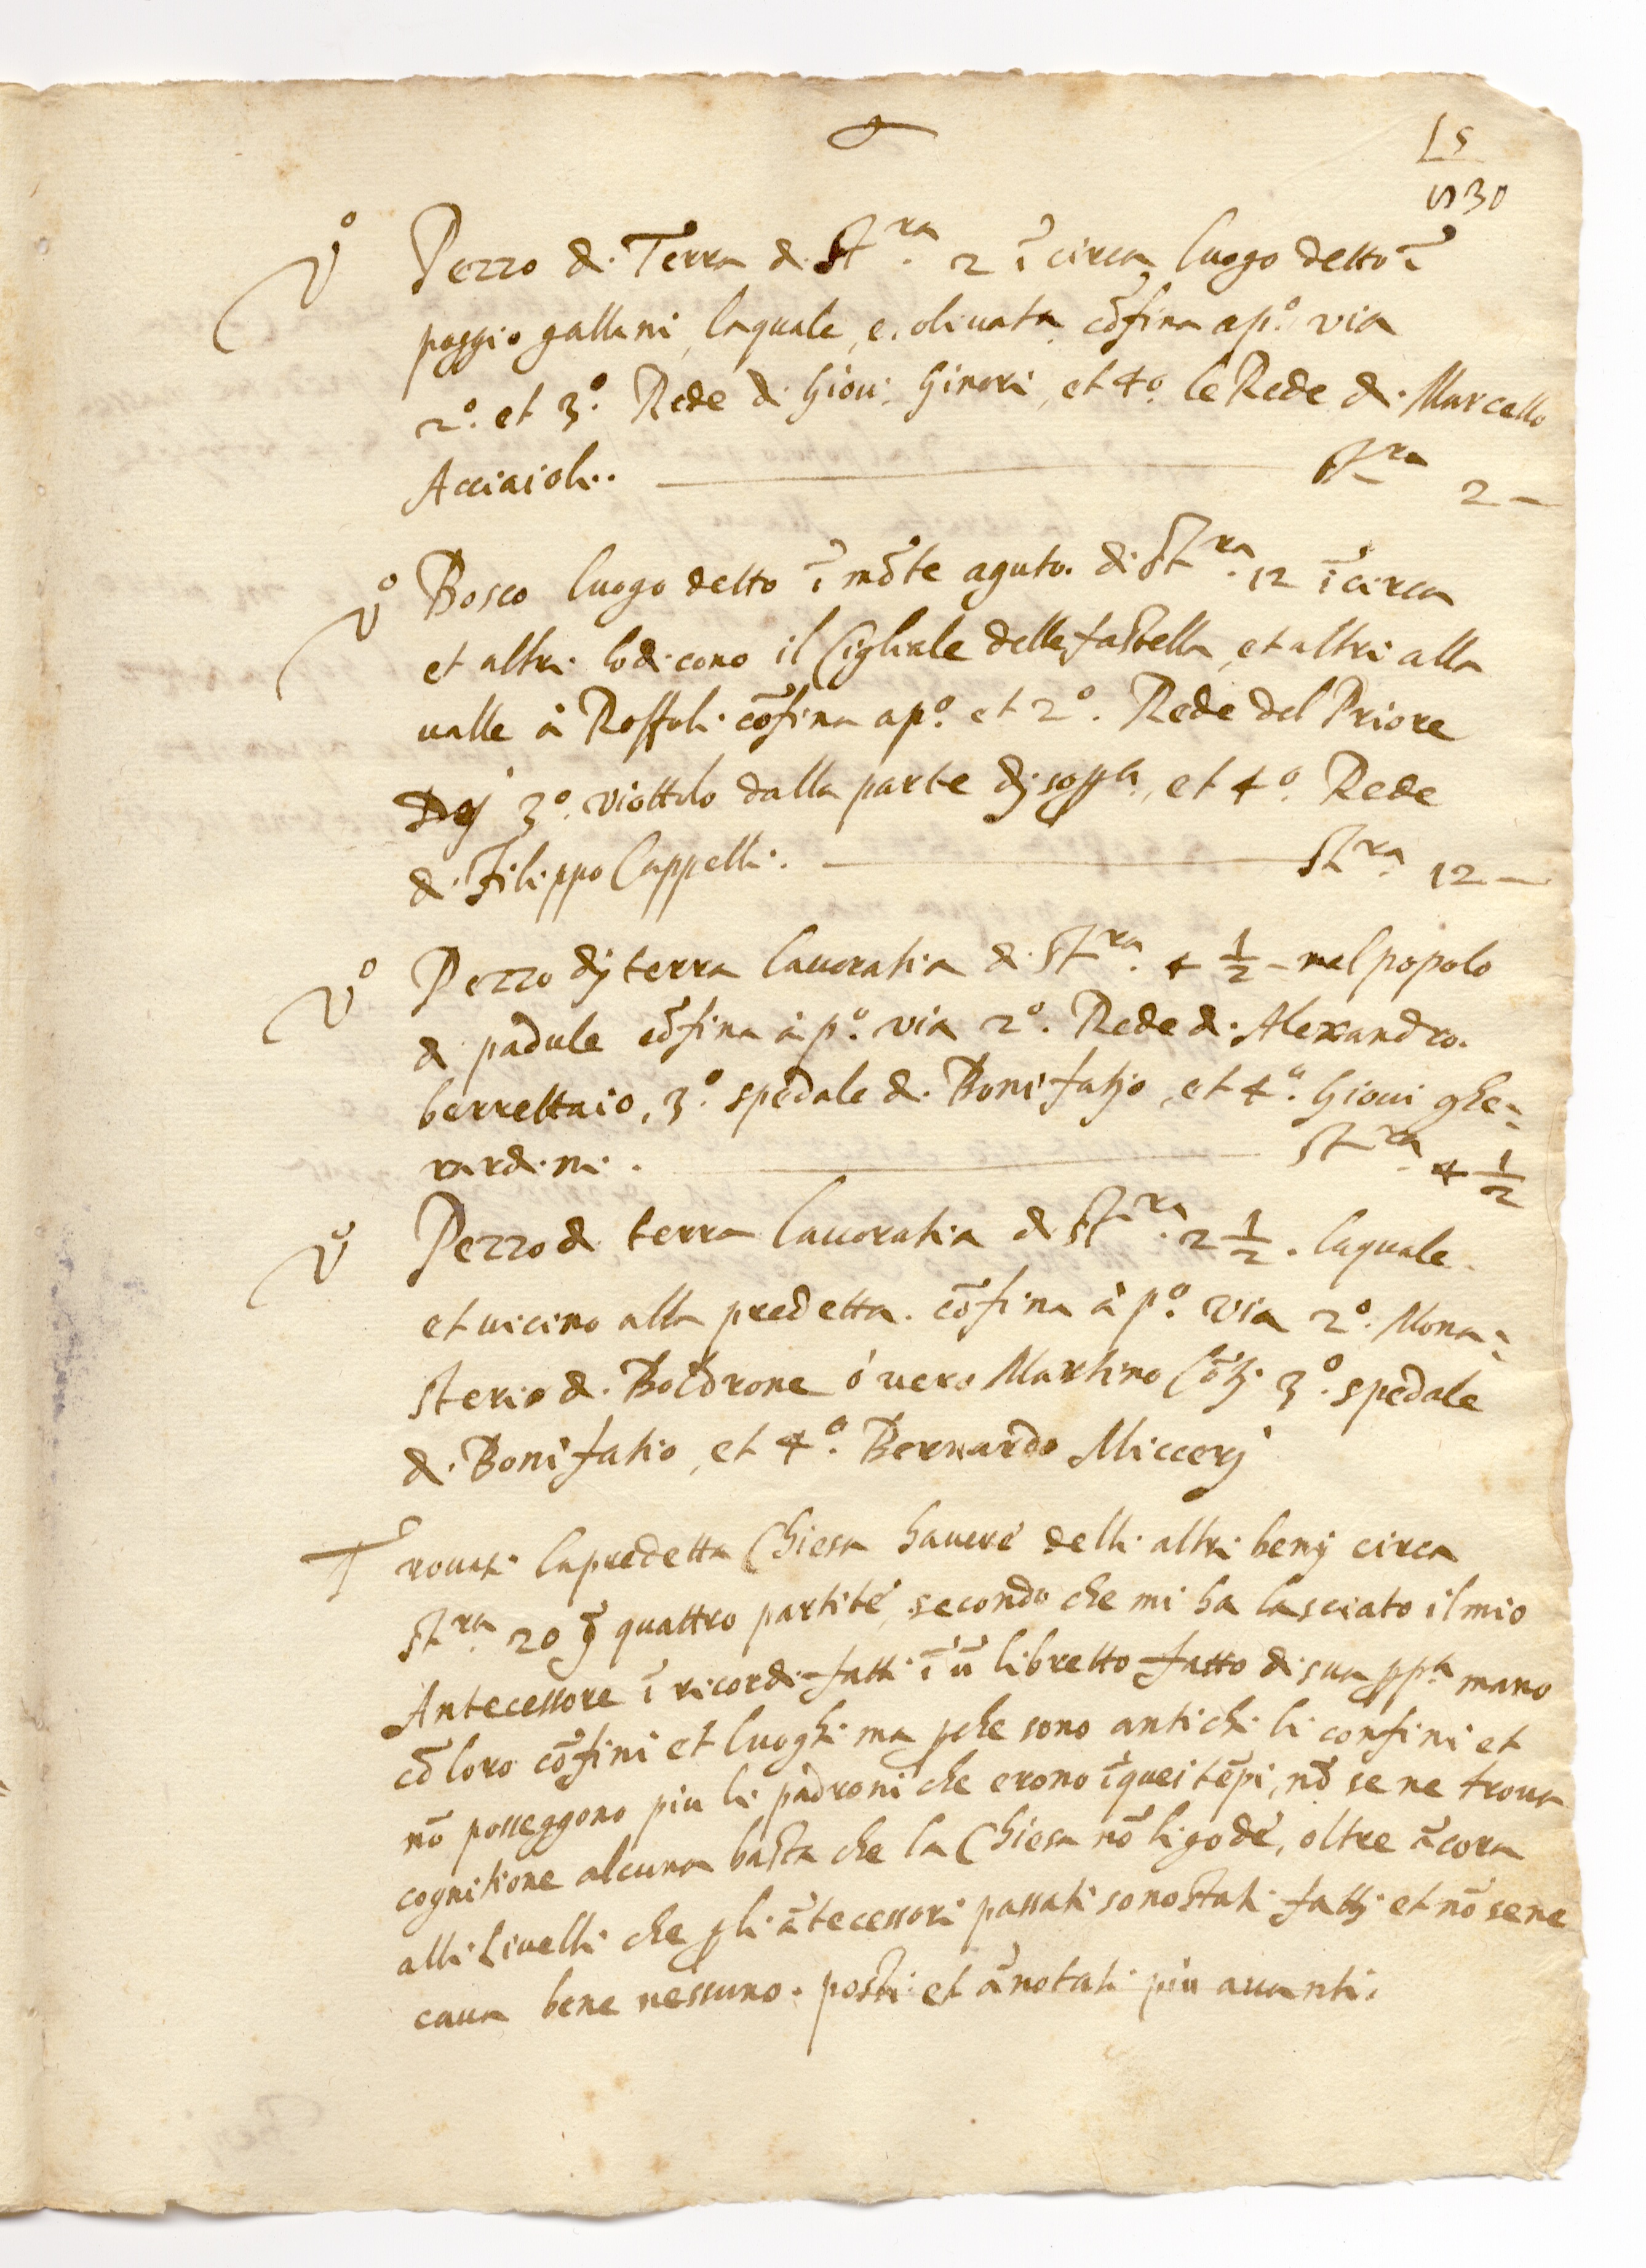 15
1530
Vo Pezzo di Terra di St.ra 2 ī circa luogo detto ī
poggio gallani, laquale, e, oliuata cōfina a p.o via
2.o et 3.o Rede di Gioū. Ginori, et 4.o le Rede di Marcello
Acciaioli. St.ra 2 —
Vo Bosco luogo detto ī mōte aguto. di St.ra 12 ī circa
et altri lo dicono il Cigliale delle fastella, et altri alla
ualle à Roffoli cōfina a p.o et 2.o Rede del Priore
3.o viottolo dalla parte dj sopp.a, et 4.o Rede
di Filippo Cappelli. St.ra 12 —
Vo Pezzo dj terra lauoratia di St.ra 4 1/2 – nel popolo
di padule cōfina à p.o via 2.o Rede di Alexandro.
berrettaio, 3.o spedale di Bonifatio, et 4.o Gioui ghe=
rardini. St.ra 4 1/2
Vo Pezzo di terra lauoratia di St.ra 2 1/2. laquale
et uicino alla predetta. cōfina à p.o via 2.o Mona=
sterio di Boldrone ò uero Martino 3.o spedale
di Bonifatio, et 4.o Bernardo Miccerj
Trouasi la predetta Chiesa hauere delli altri benj circa
St.ra 20 ꝑ quattro partite, secondo che mi ha lasciato il mio
Antecessore ī ricordi fatti ī ū libretto fatto di sua pp.a mano
cō loro cōfini et luoghi ma ꝑche sono antichi li confini et
nō posseggono piu li padroni che erono ī quei tēpi, nō se ne troua
cognitione alcuna basta che la Chiesa nō li gode, oltre ācora
alli Liuelli che gli ātecessori passati sono stati fatti et nō se ne
caua bene nessuno. posti et ānotati piu auanti.